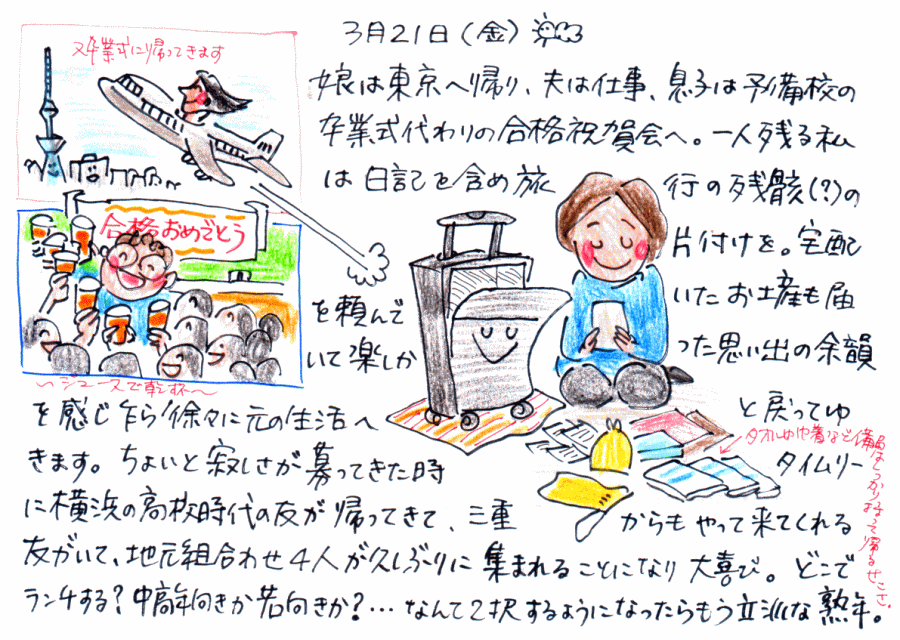 卒業式に帰ってきます
合格おめでとう
〜ジュースで乾杯〜
3月21日(金)
娘は東京へ帰り、夫は仕事、息子は予備校の
卒業式代わりの合格祝賀会へ。一人残る私
は日記を含め旅行の残骸(?)の
片付けを。宅配
を頼んでいたお土産も届
いて楽しかった思い出の余韻
を感じ乍ら徐々に元の生活へと戻ってゆ
きます。ちょいと寂しさが募ってきた時タイムリー
に横浜の高校時代の友が帰ってきて、三重からもやって来てくれる
友がいて、地元組合わせ4人が久しぶりに集まれることになり大喜び。どこで
ランチする?中高年向きか若向きか?…なんて2択するようになったらもう立派な熟年。
タオルや巾着など備品はしっかり持って帰るせこさ。